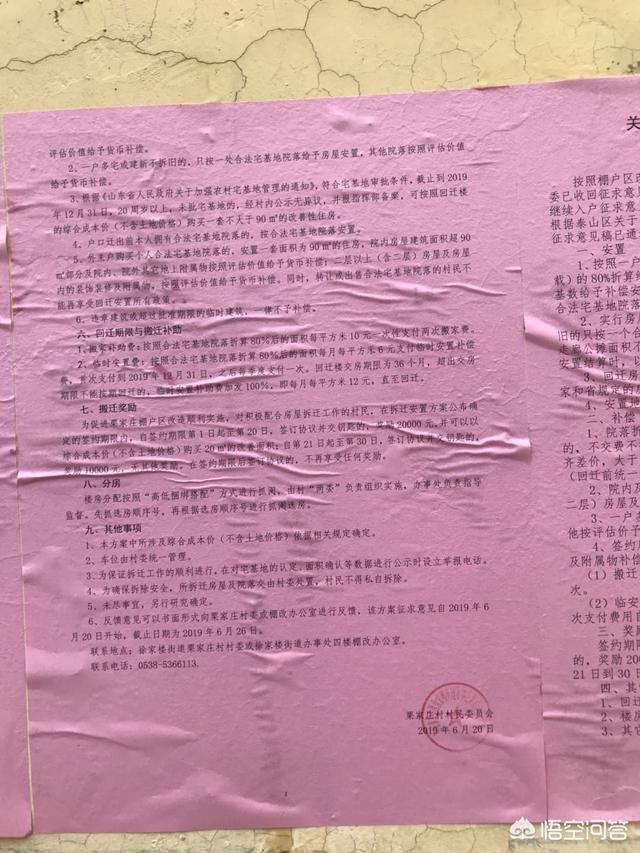 评估价值给予货币补偿。
2、一户多宅或建新不拆旧的，只按一处合法宅基地院落给予房屋安置，其他院落按照评估价值
给予货币补偿。
3、根据《山东省人民政府关于加强农村宅基地管理的通知》，符合宅基地审批条件，截止到 2019
年 12 月 31 日，20 周岁以上，未批宅基地的，经村内公示无异议，并报指挥部备案，可按照回迁楼
的综合成本价（不含土地价格）购买一套不大于 90㎡的改善性住房。
4、户口迁出前本人拥有合法宅基地院落的，按合法宅基地院落安置。
5、外来户购买个人宅基地院落的，安置一套面积为 90㎡的住房，院内房屋建筑面积超 90
㎡部分及院内、院外其宅地上附属物按照评估价值给予货币补偿；二层以上（含二层）房屋及房屋
内的装饰装修及附属物，按照评估价值给予货币补偿。同时，转让或出售合法宅基地院落的村民不
能再享受回迁安置所有政策。
6、违章建筑或超过批准期限的临时建筑，一律不予补偿。
六、回迁期限与搬迁补助
1、搬家补助费：按照合法宅基地院落折算 80%后的面积每平方米 10 元一次性支付两次搬家费。
2、临时安置费：按照合法宅基地院落折算 80%后的面积每月每平方米 6 元支付临时安置补偿
费，首次支付到 2019 年 12 月 31 日，之后每季度支付一次。回迁楼交房期限为 36 个月，超出交房
期限不能按期回迁的，临时安置补助费加发 100%，即每月每平方米 12 元，直至回迁。
七、搬迁奖励
为促进栗家庄棚户区改造顺利实施，对积极配合房屋拆迁工作的村民，在拆迁安置方案公布确
定的签约期限内，自签约期限第 1 日起至第 20 日，签订协议并交钥匙的，奖励 20000 元，并可以以
综合成本价（不含土地价格）购买 20㎡的改善面积；自第 21 日起至第 30 日，签订协议并交钥匙的，
奖励 10000 元，无其他奖励，在签约期限后签订协议的，不再享受任何奖励。
八、分房
楼房分配按照“高低捆绑搭配”方式进行抓阄，由村“两委”负责组织实施，办事处负责指导
监督。先抓选房顺序号，再根据选房顺序号进行抓阄选房。
九、其他事项
1、本方案中所涉及综合成本价（不含土地价格）依据相关规定确定。
2、车位由村委统一管理。
3、为保证拆迁工作的顺利进行，在对宅基地的认定、面积确认等数据进行公示时设立举报电话。
4、为确保拆除安全，所拆迁房屋及院落交由村委处置，村民不得私自拆除。
5、未尽事宜，另行研究确定。
6、反馈意见可以书面形式向栗家庄村委或棚改办公室进行反馈，该方案征求意见自 2019 年 6
月 20 日开始，截止日期为 2019 年 6 月 26 日。
联系地点：徐家楼街道栗家庄村委或徐家楼街道办事处四楼棚改办公室。
联系电话：0538-5366113.
栗家庄村村民委员会
2019 年 6 月 20 日
1
关
按照棚户区改
委已收回征求意见
继续入户征求意见
根据泰山区关于
征求意见稿已通
一、安置
1、按照一户
载）的 80%折算给
基数给予补偿安
合法宅基地院落
2、实行房
旧的只按一个
走廊公摊面积不
安置结算时，
3、回迁房
家和省规定的
4、安置地
二、补偿
1、院落折
的，不交费不
齐差价，大于
（回迁前统一
2、院内及
二层）房屋及
3、一户多
他按评估价予
4、签约期
及附属物补偿
（1）搬迁
次。
（2）临安
次支付费用自
三、奖励
签约期限
的，奖励 200
21 日到 30 日
四、其
1、回迁
2、楼房
3、其它
悟空问答